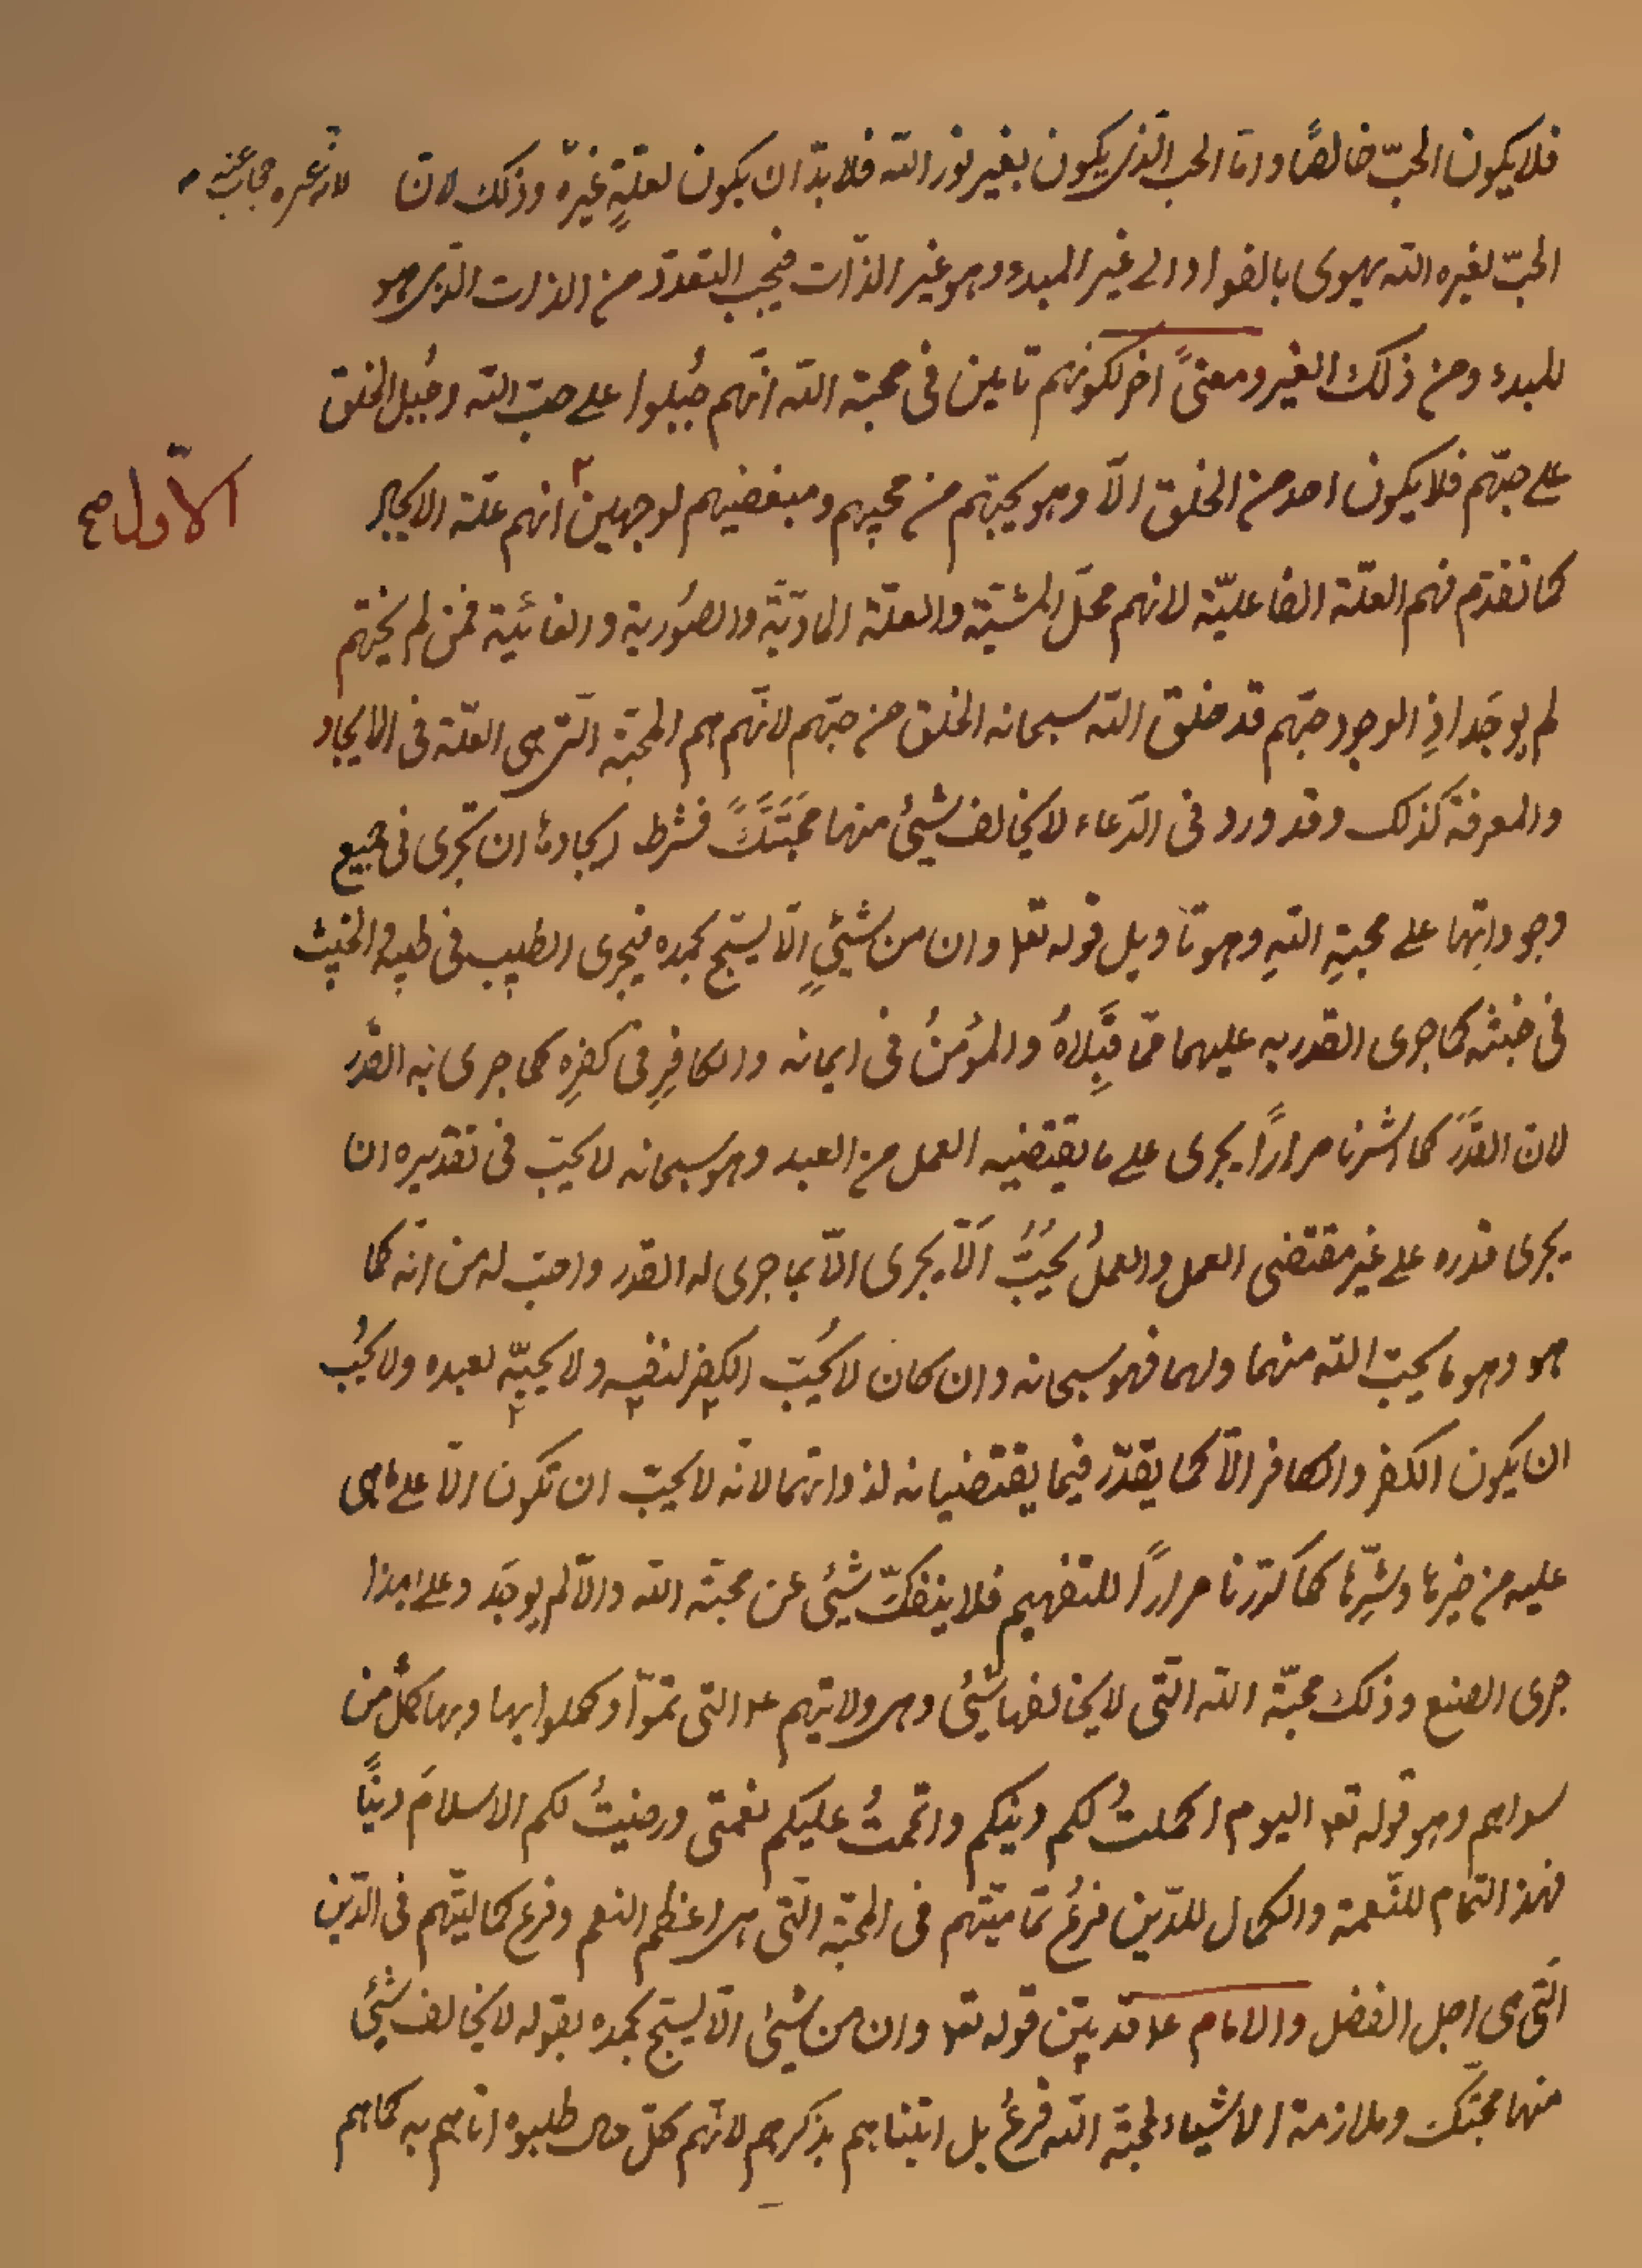 فلا يكون الحبّ خالصًا وامّا الحب الّذى يكون بغير نور اللّه فلا بدّ ان يكون لعلّةٍ غيرهّ وذلك لانّ
الحبّ لغيره اللّه يهوى بالفواد الى غير المبدء وهو غير الذّات فيجب التعدّد من الذات الذى هو
للمبدء ومن ذلك الغير ومعنىً اخر لكونهم تامين فى محبة اللّه انّهم جُبلوا على حبّ اللّه وجُبل الخلق
على حبّهم فلا يكون احد من الخلق الّا وهو يحبّهم من محبهم ومبغضيهم لوجهين انهم علّة الايجاد
الاوّل صح
كما تقدّم فهم العلّة الفاعليّة لانهم محلّ المشيّة والعلّة المادّيّة والصّورية والغائية فمن لم يحبّهم
لم يوجَد اذِ الوجود حبّهم قد خلق اللّه سبحانه الخلق من حبّهم لانّهم هم المحبّة الّتى هى العلّة فى الايجاد
والمعرفة كذلك وقد ورد فى الدّعاء لا يخالف شيئ منها محبّتَكَ فشرط ايجادها ان تجرى فى جميع
وجوداتها على محبةِ اللّهِ وهو تاويل قوله تعا وان من شيئٍ الّا يسبّح بحمده فيجرى الطيب فى طيبه والخبيث
فى خبثه كما جرى القدر به عليهما ممّا قَبِلاهُ والمؤمنُ فى ايمانه والكافِرِ فى كفرِه كما جرى به القدَر
لان القدَرَ كما اشرنا مرارًا يجرى على ما يقتضيه العمل من العبد وهو سبحانه لا يحبّ فى تقديره ان
يجرى قدره على غير مقتضى العمل والعملُ يُحبُّ الّا يجرى الّا بما جرى له القدر واحبّ له من انّه كما
هو وهو ما يحبّ اللّه منهما ولهما فهو سبحانه وان كان لا يُحبّ الكفر لنفسه ولا يحبّه لعبده ولا يُحبّ
ان يكون الكفر والكافر الّا كما يقدّر فيما يقتضيانه لذواتهما لانّه لا يحبّ ان تكون الّا على ما هى
عليه من خيرها وشرّها كما كرّرنا مرارًا للتفهيم فلا ينفكّ شيئ عن محبّة اللّه والّا لم يوجَد وعلى هذا
جرى الصنع وذلك محبّة اللّه الّتى لا يخالفها شيئ وهى ولايتهم ع التى تمّوا وكملوا بها وبها كمُل من
سواهم وهو قوله تعا اليوم اكملتُ لكم دينكم واتممتُ عليكم نعمتى ورضيتُ لكم الاسلامَ دينًا
فهذ التمام للنّعمة والكمال للدّين فرعُ تماميّتهم فى المحبّة الّتى هى اعظم النعم وفرع كماليّتهم فى الدّين
الّتى هى اصل الفضل والامام ع قد بيّن قوله تعا وان من شيئ الّا يسبّح بحمده بقوله لا يخالف شيئ
منها محبّتك وملازمة الاشياء لمحبّة اللّه فرعُ بل اتيناهم بذكرهم لانّهم كلّ ما طلبوه اتاهم به كما هم